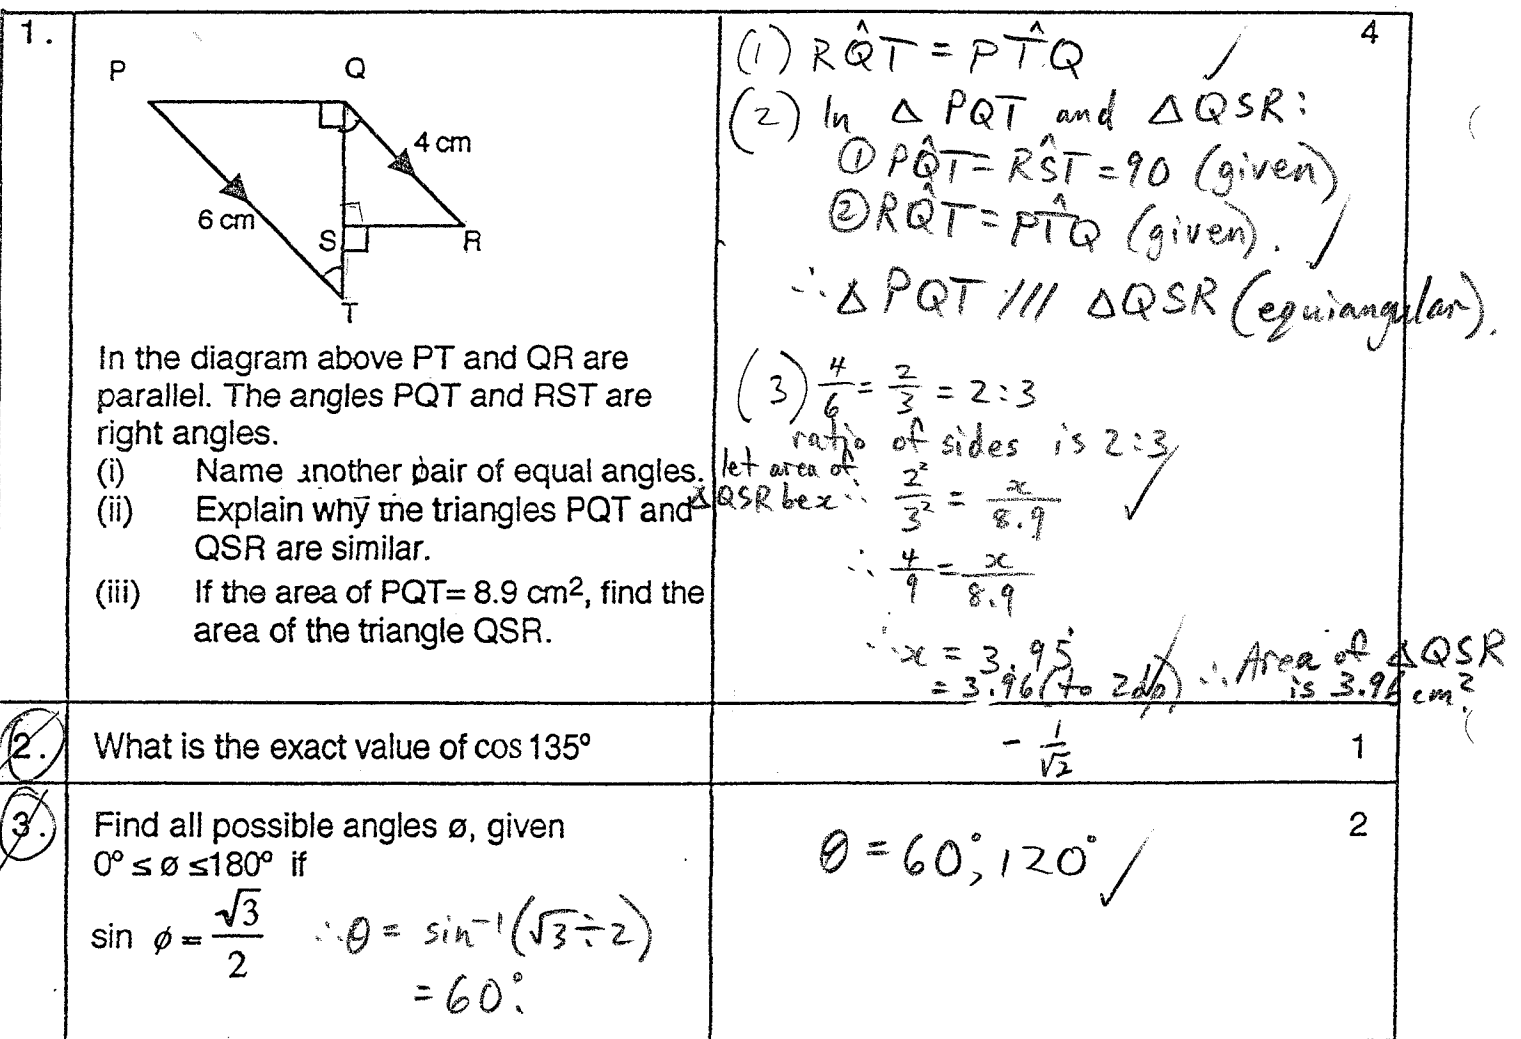 1.
P
Q
4 cm
6 cm
S
R
T
In the diagram above PT and QR are
parallel. The angles PQT and RST are
right angles.
(i) Name another pair of equal angles.
(ii) Explain why the triangles PQT and
QSR are similar.
(iii) If the area of PQT= 8.9 cm², find the
area of the triangle QSR.
(1) RQ̂T = PT̂Q ✓
4
(2) In △ PQT and △QSR:
① PQ̂T = RŜT = 90 (given)
② RQ̂T = PT̂Q (given). ✓
∴ △ PQT /// △QSR (equiangular).
(3) 4/6 = 2/3 = 2:3
ratio of sides is 2:3
let area of
△QSR be x ∴ 2²/3² = x/8.9 ✓
∴ 4/9 = x/8.9
∴ x = 3.95̇
= 3.96 (to 2dp) ✓ ∴ Area of △QSR
is 3.96 cm².
2. What is the exact value of cos 135º
- 1/√2
1
3. Find all possible angles ø, given
0º ≤ ø ≤180º if
sin ø = √3/2
∴ θ = sin⁻¹(√3÷2)
= 60°.
θ = 60°, 120° ✓
2